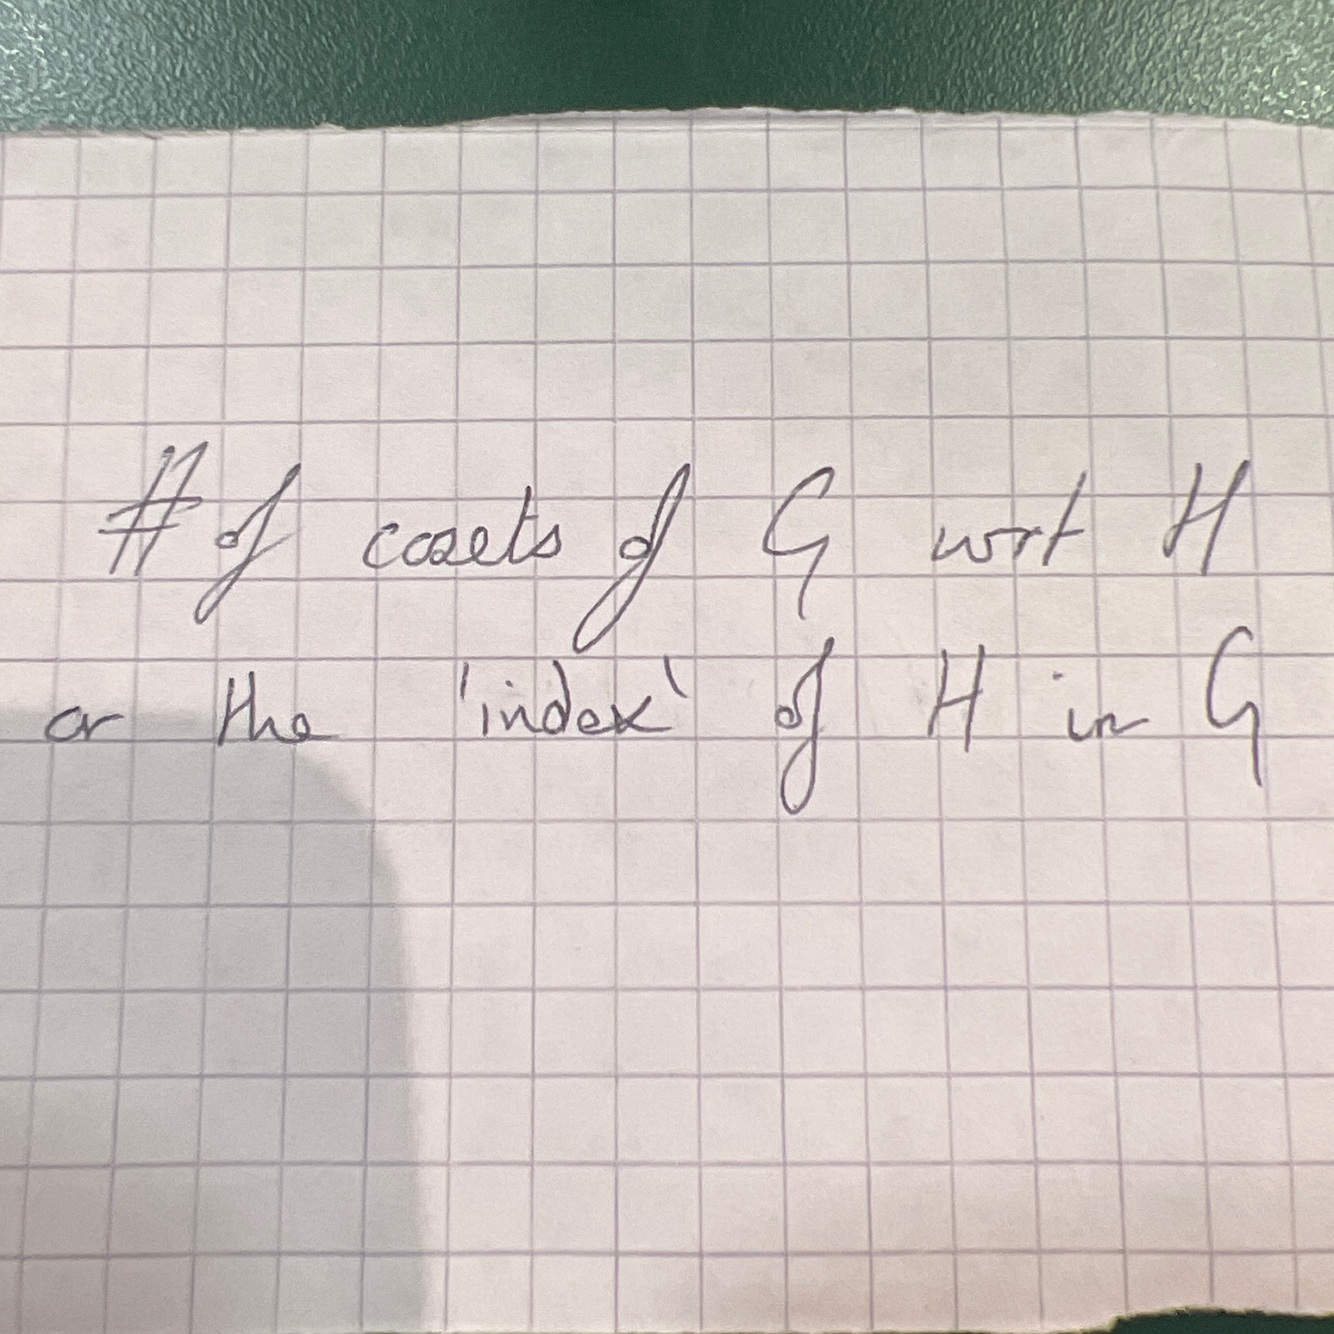 # of cosets of G wrt H
or the 'index' of H in G